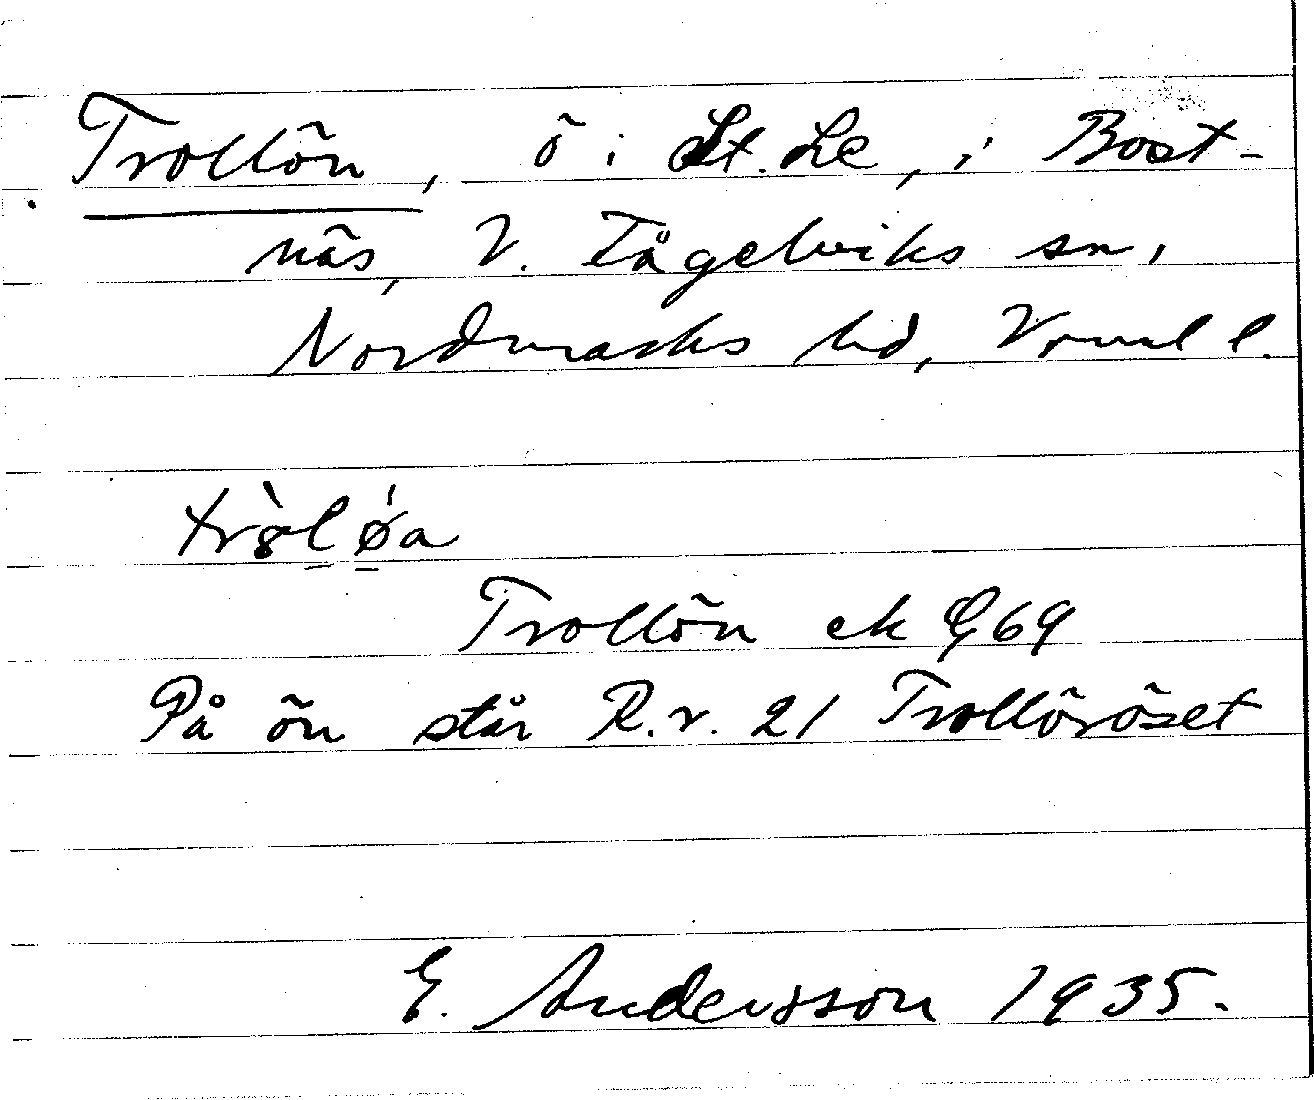 Trollön, ö i St. Le, i Bost-
näs, V. Fågelviks sn,
Nordmarks hd, Vrml l.
tròl øa
Trollön ek G69
På ön står R.r. 21 Trolloröset
G. Andersson 1935.